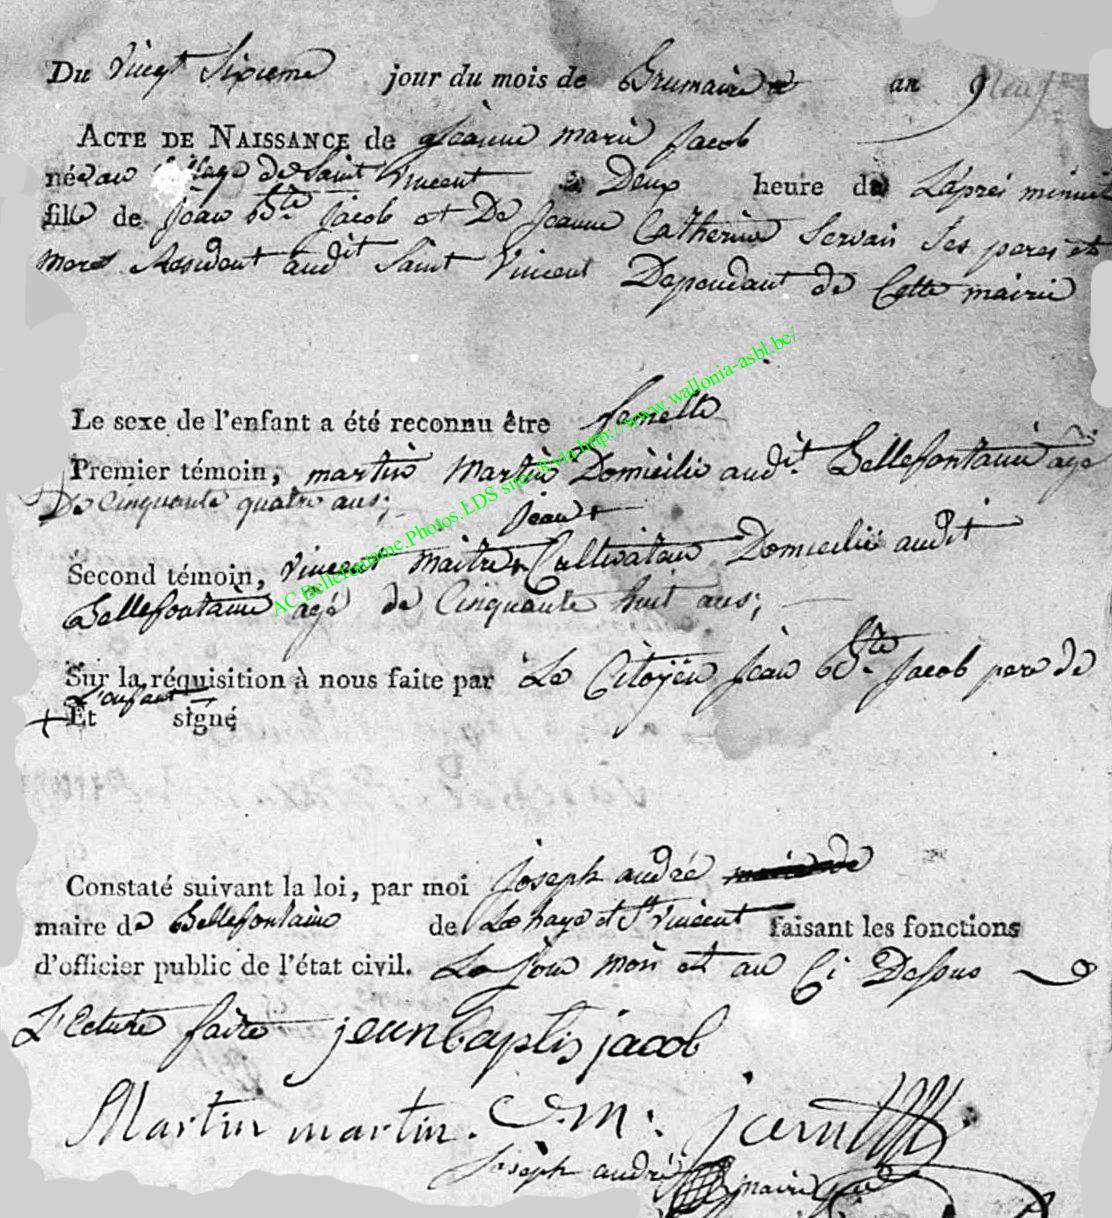 Du Vingt Sixieme jour du mois de Brumaire an 9 Neuf
ACTE DE NAISSANCE de Jeanne marie Jacob
née au village de Saint Vincent a Deux heure de L'aprés minuit
fille de Jean Bte Jacob et De Jeanne Catherine Servais Ses peres et
meres Resident audit Saint Vincent Dependant de Cette mairie
Le sexe de l'enfant a été reconnu être femelle
Premier témoin, martin Martin Domicilié audit Bellefontaine agé
De Cinquante quatre ans;
Jean
Second témoin, Vincent maitre Cultivateur Domicilié audit
Bellefontaine agé de Cinquante huit ans;
Sur la réquisition à nous faite par Le Citoyen Jean Bte Jacob pere de
L'enfant
Et signé
Constaté suivant la loi, par moi Joseph andré
maire de Bellefontaine de La haye et St Vincent faisant les fonctions
d'officier public de l'état civil. Le Jour mois et an Ci Dessus
L'Ecture faite jean baptis jacob
Martin martin. C.m: jean
Joseph andré maire
AC.Bellefontaine.Photos.LDS site http://www.wallonia-asbl.be/